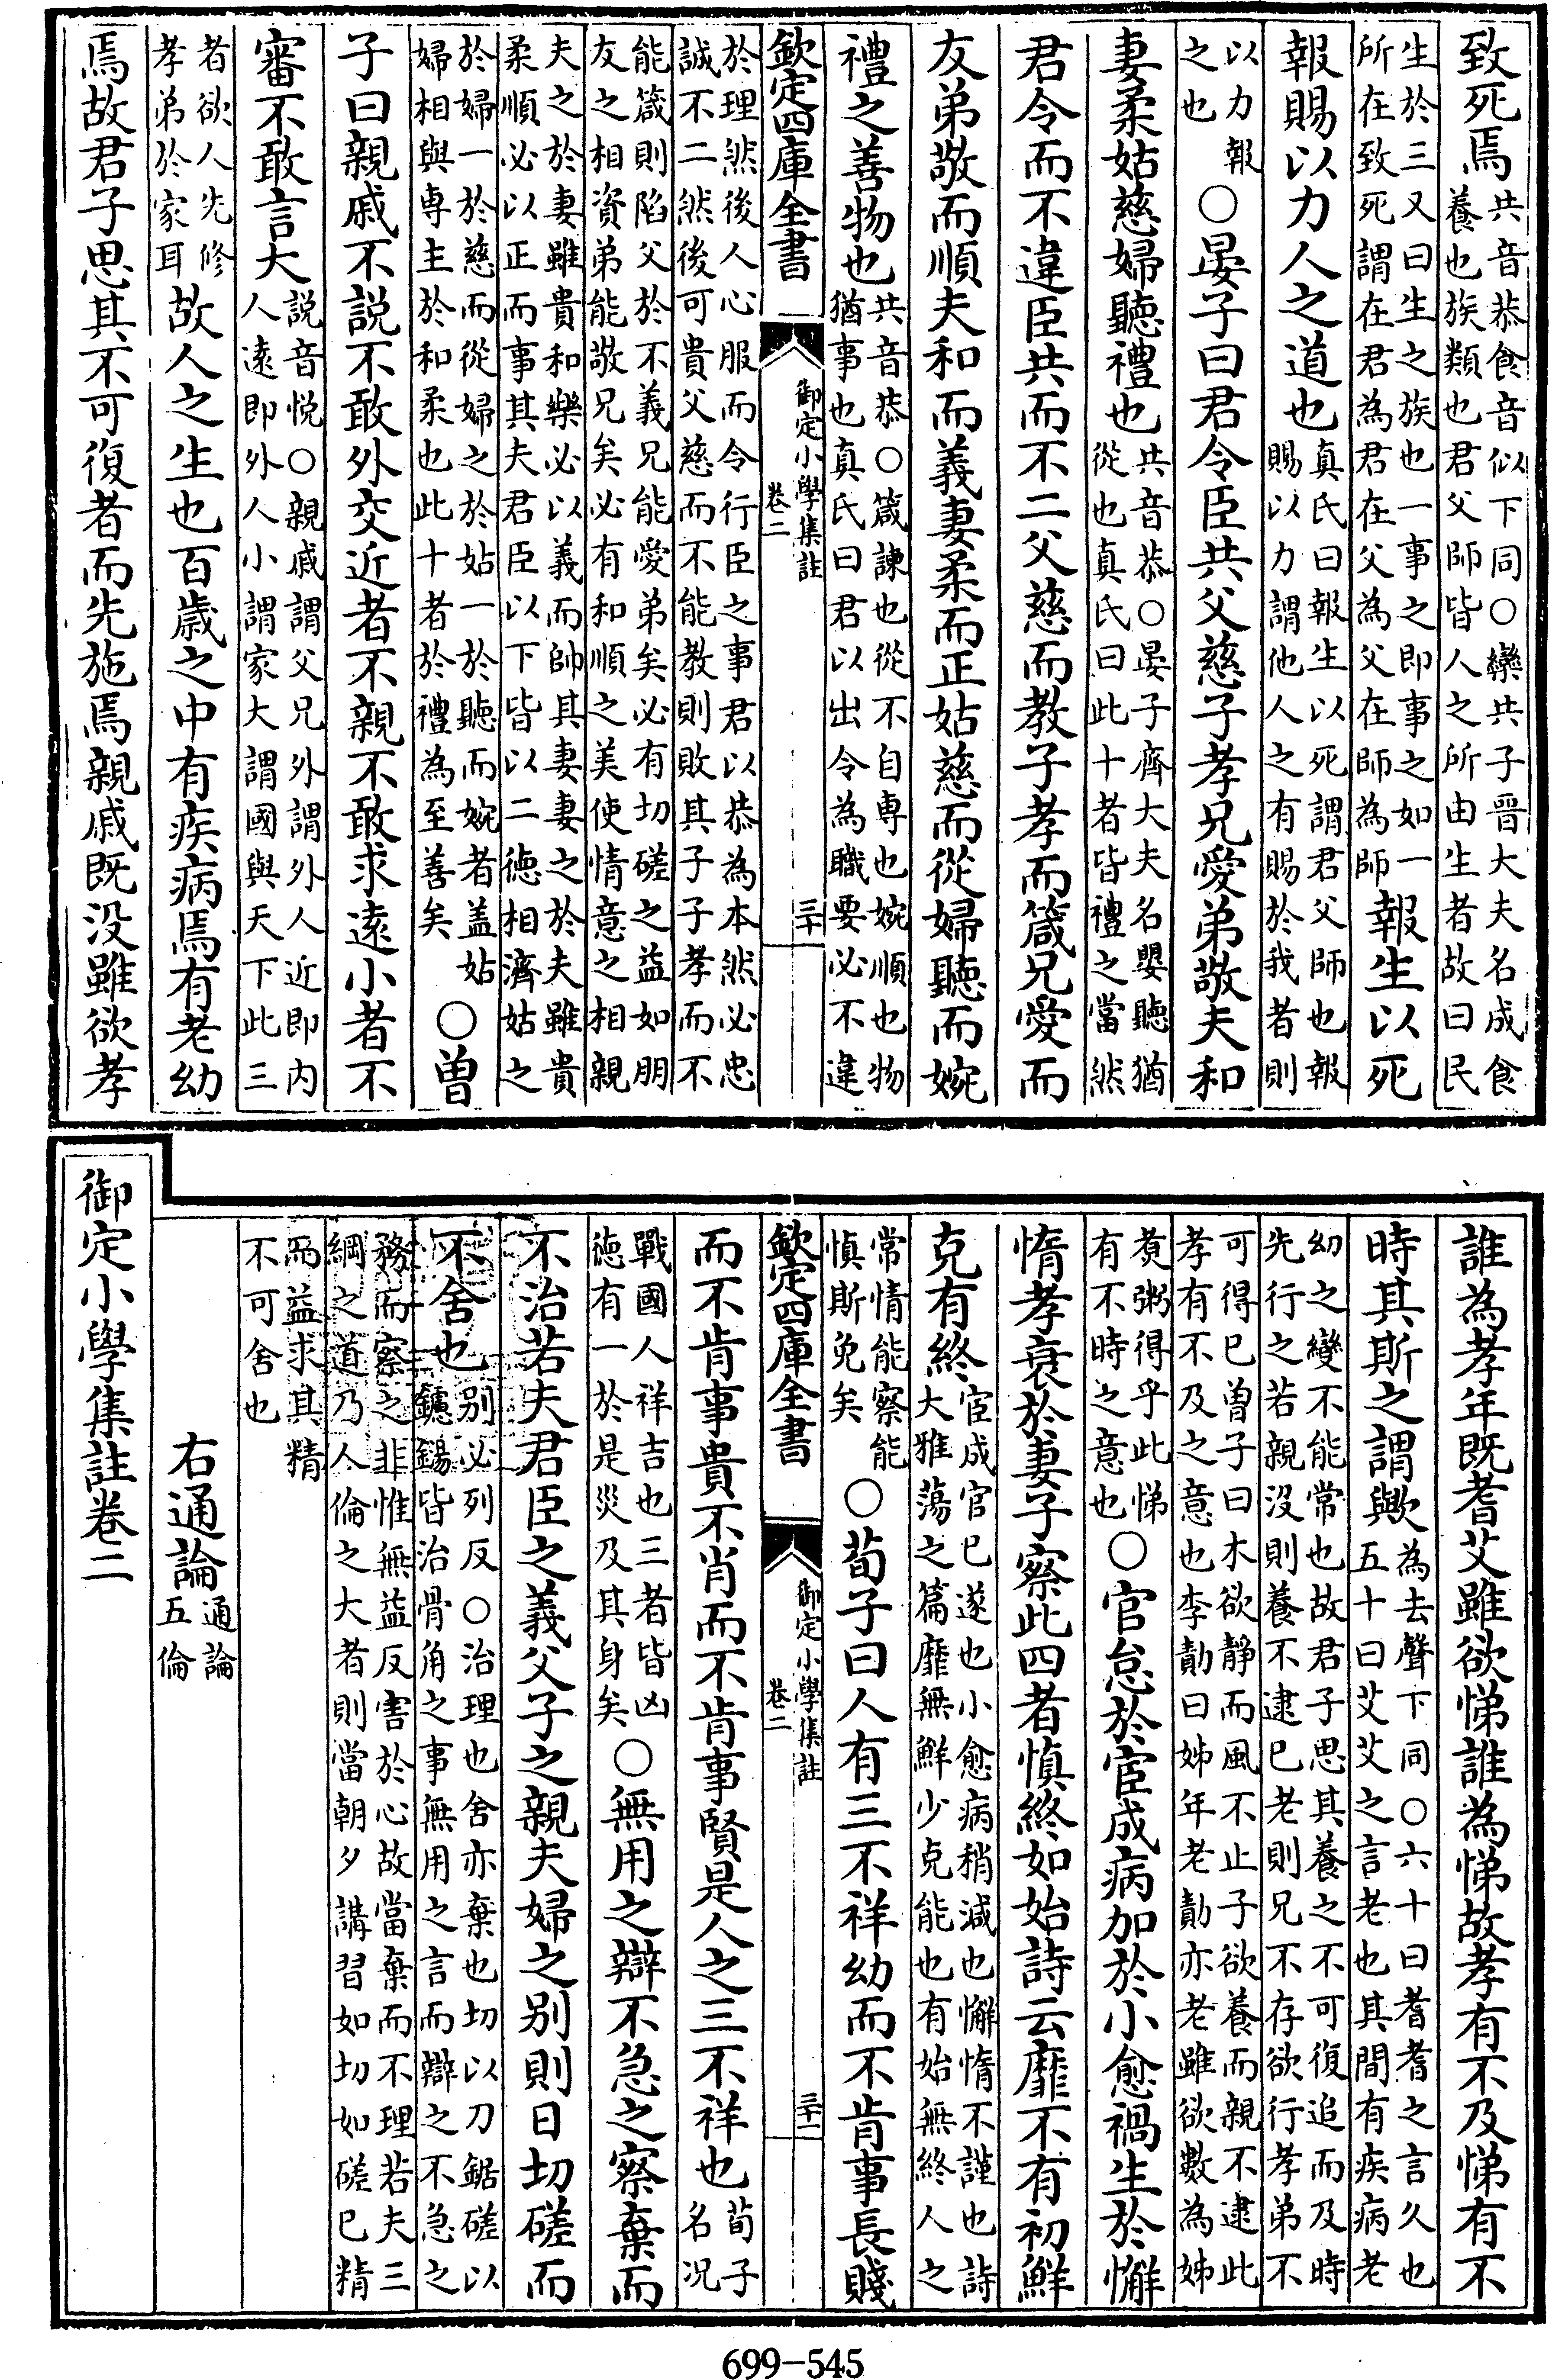 致死焉共音恭食音似下同○欒共子晉大夫名成食
養也族類也君父師皆人之所由生者故曰民
生於三又曰生之族也一事之即事之如一
所在致死謂在君為君在父為父在師為師報生以死
報賜以力人之道也真氏曰報生以死謂君父師也報
賜以力謂他人之有賜於我者則
以力報
之也○晏子曰君令臣共父慈子孝兄愛弟敬夫和
妻柔姑慈婦聽禮也共音恭○晏子齊大夫名嬰聽猶
從也真氏曰此十者皆禮之當然
君令而不違臣共而不二父慈而教子孝而箴兄愛而
友弟敬而順夫和而義妻柔而正姑慈而從婦聽而婉
禮之善物也共音恭○箴諫也從不自専也婉順也物
猶事也真氏曰君以出令為職要必不違
欽定四庫全書
御定小學集註
卷二
三十
於理然後人心服而令行臣之事君以恭為本然必忠
誠不二然後可貴父慈而不能教則敗其子子孝而不
能箴則陷父於不義兄能愛弟矣必有切磋之益如朋
友之相資弟能敬兄矣必有和順之美使情意之相親
夫之於妻雖貴和樂必以義而帥其妻妻之於夫雖貴
柔順必以正而事其夫君臣以下皆以二徳相濟姑之
於婦一於慈而從婦之於姑一於聽而婉者盖姑
婦相與専主於和柔也此十者於禮為至善矣○曽
子曰親戚不説不敢外交近者不親不敢求遠小者不
審不敢言大説音悦○親戚謂父兄外謂外人近即内
人遠即外人小謂家大謂國與天下此三
者欲人先修
孝弟於家耳故人之生也百歳之中有疾病焉有老幼
焉故君子思其不可復者而先施焉親戚既没雖欲孝
誰為孝年既耆艾雖欲悌誰為悌故孝有不及悌有不
時其斯之謂歟為去聲下同○六十曰耆耆之言久也
五十曰艾艾之言老也其間有疾病老
幼之變不能常也故君子思其養之不可復追而及時
先行之若親沒則養不逮已老則兄不存欲行孝弟不
可得已曽子曰木欲静而風不止子欲養而親不逮此
孝有不及之意也李勣曰姊年老勣亦老雖欲數為姊
煑粥得乎此悌
有不時之意也○官怠於宦成病加於小愈禍生於懈
惰孝衰於妻子察此四者慎終如始詩云靡不有初鮮
克有終宦成官已遂也小愈病稍減也懈惰不謹也詩
大雅蕩之篇靡無鮮少克能也有始無終人之
常情能察能
慎斯免矣○荀子曰人有三不祥幼而不肯事長賤
欽定四庫全書
御定小學集註
卷二
三十一
而不肯事貴不肖而不肯事賢是人之三不祥也荀子
名况
戰國人祥吉也三者皆凶
徳有一於是災及其身矣○無用之辯不急之察棄而
不治若夫君臣之義父子之親夫婦之别則日切磋而
不舍也别必列反○治理也舍亦棄也切以刀鋸磋以
鑢鐋皆治骨角之事無用之言而辯之不急之
務而察之非惟無益反害於心故當棄而不理若夫三
綱之道乃人倫之大者則當朝夕講習如切如磋已精
而益求其精
不可舍也
右通論通論
五倫
御定小學集註卷二
699-545